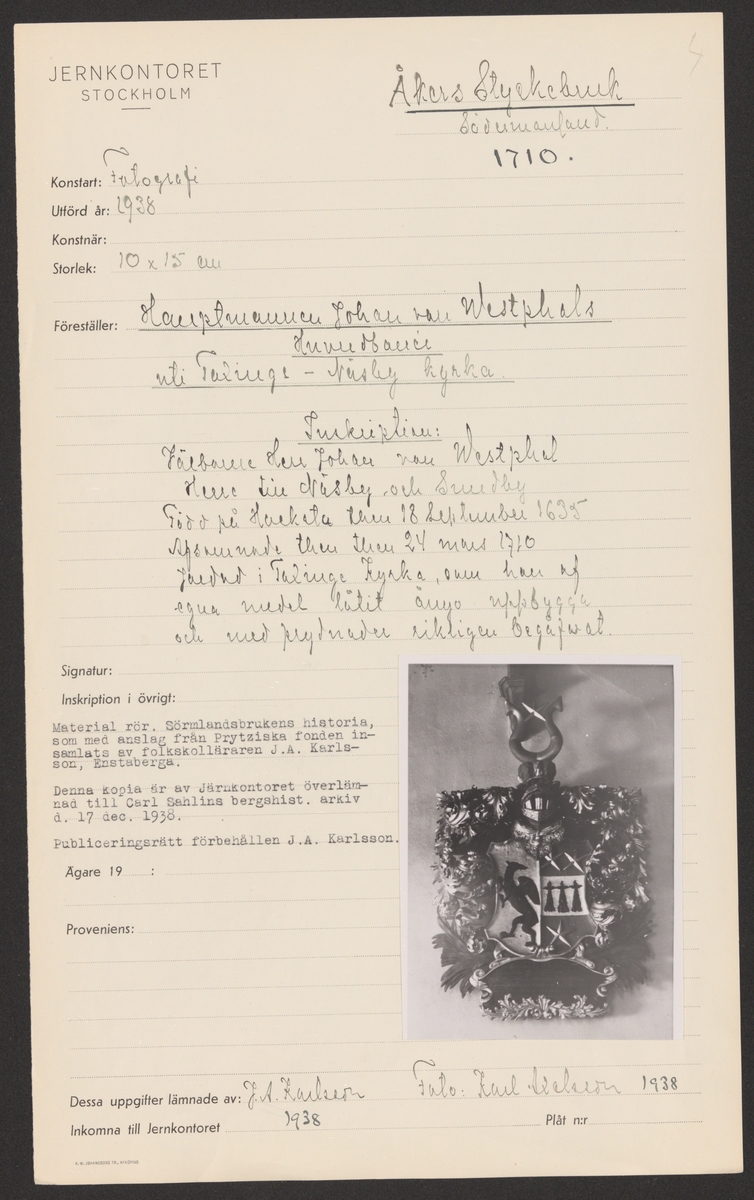 JERNKONTORET
STOCKHOLM
Åkers Styckebruk
Södermanland.
1710.
Konstart: Fotografi
Utförd år: 1938
Konstnär:
Storlek: 10 x 15 cm
Föreställer: Hauptmannen Johan von Westphals
Huvudbanér
uti Taxinge - Näsby kyrka.
Inskription:
Välborne Herr Johan von Westphal
Herre till Näsby och Smedby
Född på Hacksta then 18 September 1635
Afsomnade then then 24 mars 1710
Jordad i Taxinge Kyrka, som han af
egna medel låtit ånyo uppbygga
och med prydnader rikligen begåfwat.
Signatur:
Inskription i övrigt:
Material rör. Sörmlandsbrukens historia,
som med anslag från Prytziska fonden in-
samlats av folkskolläraren J.A. Karls-
son, Enstaberga.
Denna kopia är av Järnkontoret överläm-
nad till Carl Sahlins bergshist. arkiv
d. 17 dec. 1938.
Publiceringsrätt förbehållen J.A. Karlsson.
Ägare 19 :
Proveniens:
Dessa uppgifter lämnade av: J.A. Karlsson Foto: Karl Axelsson 1938
Inkomna till Jernkontoret 1938 Plåt n:r